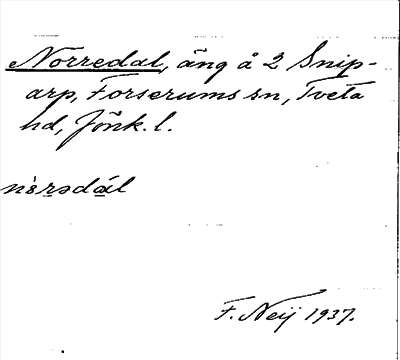 Norredal, äng å 2 Snip-
arp, Forserums sn, Tveta
hd, Jönk. l.
nò̀rədál
F. Neij 1937.